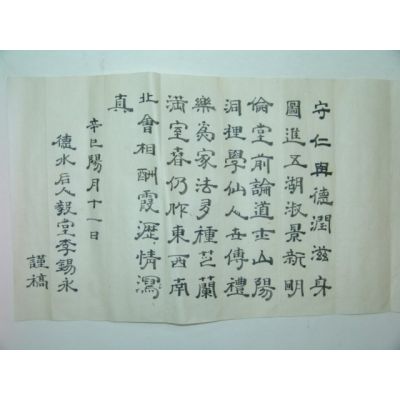 守仁與德潤滋身
圖進五湖淑景新明
倫堂前論道士山陽
洞理學仙人世傳禮
樂為家法多種芝蘭
満室春仍昨東西南
北會相酬霞瀝情瀉
真
辛巳陽月十一日
德水后人毅堂李錫永
謹稿